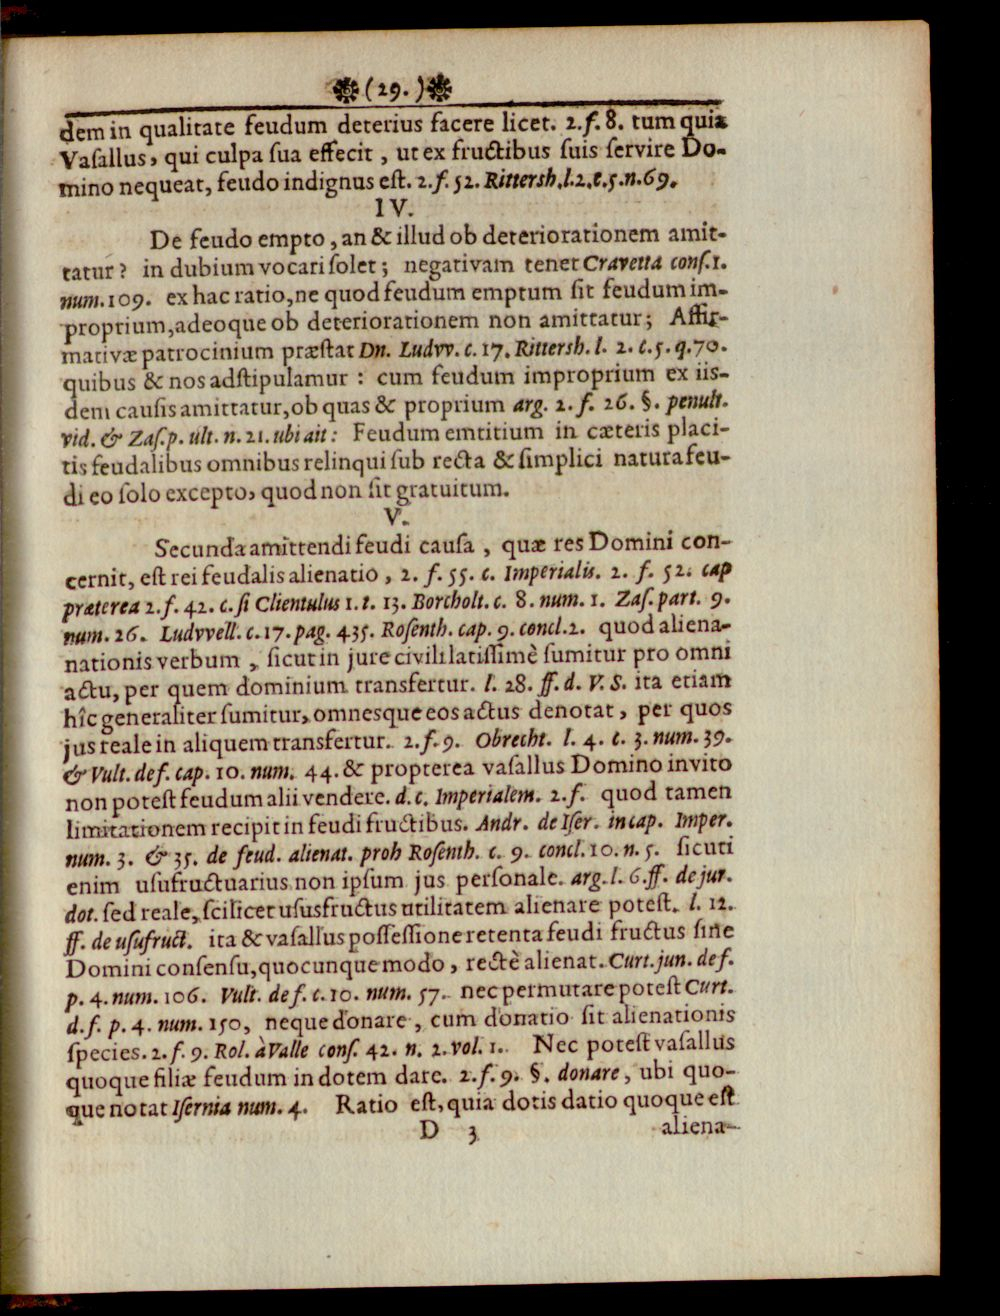 (29.)
dem in qualitate feudum deterius facere licet. 2.f. 8. tum quia
Vasallus, qui culpa sua effecit, ut ex fructibus suis servire Do-
mino nequeat, feudo indignus est. 2. f. 52. Rittersh. l. 2. c. 5. n. 69.
IV.
De feudo empto, an & illud ob deteriorationem amit-
tatur? in dubium vocari solet; negativam tenet Cravetta cons. 1.
num. 109. ex hac ratio, ne quod feudum emptum sit feudum im-
proprium, adeoque ob deteriorationem non amittatur; Affir-
mativæ patrocinium præstat Dn. Ludvv. c. 17. Rittersh. l. 2. c. 5. q. 70.
quibus & nos adstipulamur: cum feudum improprium ex iis-
dem causis amittatur, ob quas & proprium arg. 2. f. 26. §. penult.
vid. & Zas. p. ult. n. 21. ubi ait: Feudum emtitium in cæteris placi-
tis feudalibus omnibus relinqui sub recta & simplici natura feu-
di eo solo excepto, quod non sit gratuitum.
V.
Secunda amittendi feudi causa, quæ res Domini con-
cernit, est rei feudalis alienatio, 2. f. 55. c. Imperialis. 2. f. 52. cap
præterea 2. f. 42. c. si Clientulus 1. t. 13. Borcholt. c. 8. num. 1. Zas. part. 9.
num. 26. Ludvvell. c. 17. pag. 435. Rosenth. cap. 9. concl. 2. quod aliena-
nationis verbum, sicut in jure civili latissimè sumitur pro omni
actu, per quem dominium transfertur. l. 28. ff. d. V. S. ita etiam
hîc generaliter sumitur, omnesque eos actus denotat, per quos
jus reale in aliquem transfertur. 2. f. 9. Obrecht. l. 4. c. 3. num. 39.
& Vult. def. cap. 10. num. 44. & propterea vasallus Domino invito
non potest feudum alii vendere. d. c. Imperialem. 2. f. quod tamen
limitationem recipit in feudi fructibus. Andr. de Iser. in cap. Imper.
num. 3. & 35. de feud. alienat. proh Rosenth. c. 9. concl. 10. n. 5. sicuti
enim usufructuarius non ipsum jus personale. arg. l. 6. ff. de jur.
dot. sed reale, scilicet ususfructus utilitatem alienare potest. l. 12.
ff. de usufruct. ita & vasallus possessione retenta feudi fructus sine
Domini consensu, quocunque modo, rectè alienat. Curt. jun. de f.
p. 4. num. 106. Vult. de f. c. 10. num. 57. nec permutare potest Curt.
d. f. p. 4. num. 150, neque donare, cum donatio sit alienationis
species. 2. f. 9. Rol. à Valle cons. 42. n. 2. vol. 1. Nec potest vasallus
quoque filiæ feudum in dotem dare. 2. f. 9. §. donare, ubi quo-
que notat Isernia num. 4. Ratio est, quia dotis datio quoque est
D 3 aliena-